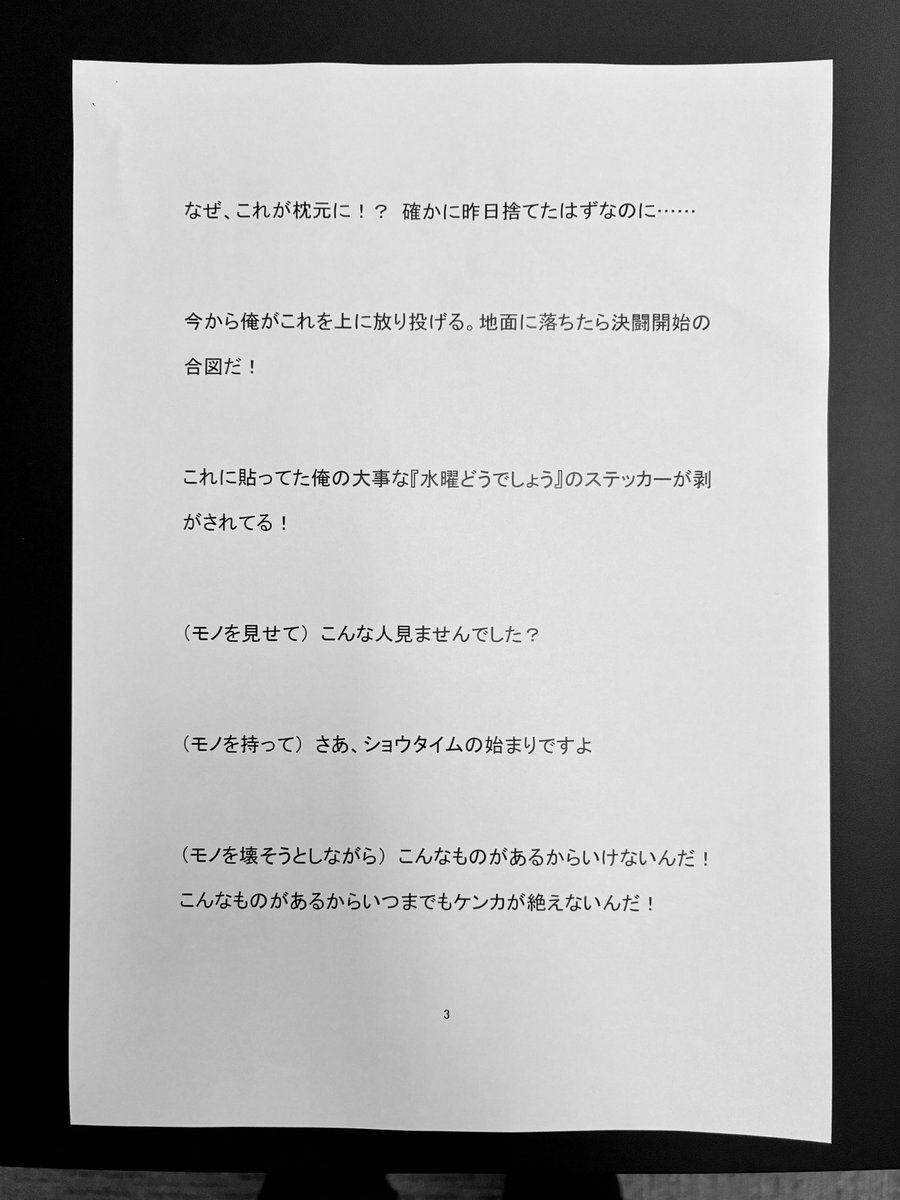 なぜ、これが枕元に！？　確かに昨日捨てたはずなのに……
今から俺がこれを上に放り投げる。地面に落ちたら決闘開始の
合図だ！
これに貼ってた俺の大事な『水曜どうでしょう』のステッカーが剥
がされてる！
（モノを見せて）こんな人見ませんでした？
（モノを持って）さあ、ショウタイムの始まりですよ
（モノを壊そうとしながら）こんなものがあるからいけないんだ！
こんなものがあるからいつまでもケンカが絶えないんだ！
3